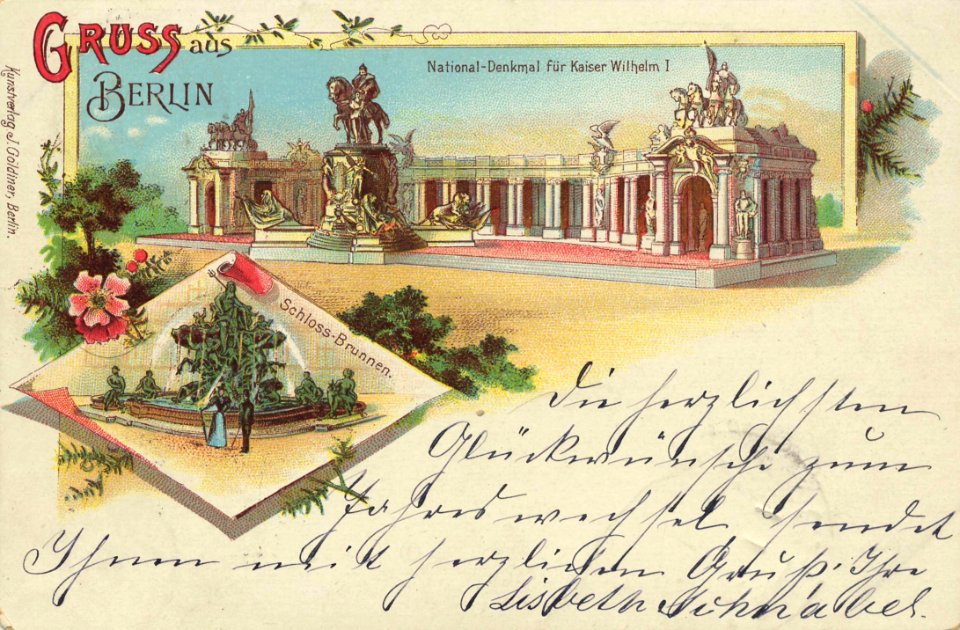 GRUSS aus
BERLIN
National-Denkmal für Kaiser Wilhelm I
Kunstverlag J. Goldiner, Berlin.
Schloss-Brunnen.
Die herzlichsten
Glückwünsche zum
Jahreswechsel sendet
Ihnen mit herzlichen Gruß. Ihre
Lisbeth Schnabel.